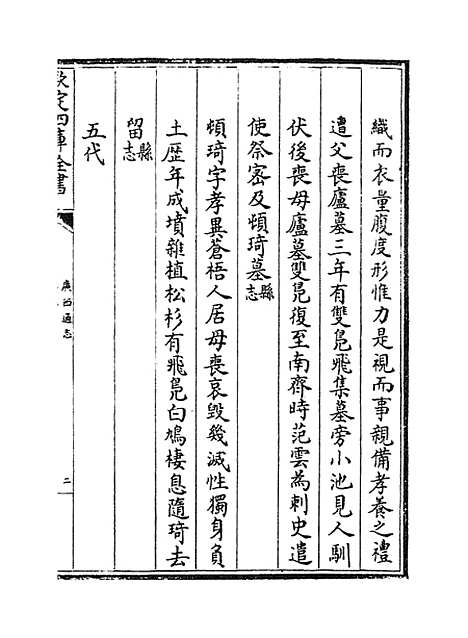 織而衣量腹度形惟力是視而事親備孝養之禮
遭父喪廬墓三年有雙鳧飛集墓旁小池見人馴
伏後喪母廬墓雙鳧復至南齊時范雲為刺史遣
使祭密及頓琦墓縣志
頓琦字孝異蒼梧人居母喪哀毀幾滅性獨身負
土歷年成墳雜植松杉有飛鳧白鳩棲息隨琦去
留縣志
五代
欽定四庫全書
廣西通志
二